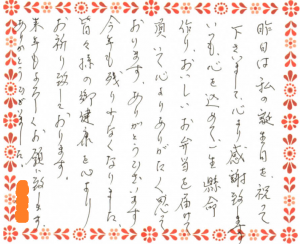 昨日は私の敬老日を祝って
下さいまして、心より感謝致します
いつも心を込めて一生懸命
作り、おいしいお弁当を届けて
頂いて心よりありがたく思って
おります。ありがとうございます
今年も残り少なくなりました、
皆々様の御健康を心より
お祈り致しております。
来年もよろしくお願い致します
ありがとうございました。